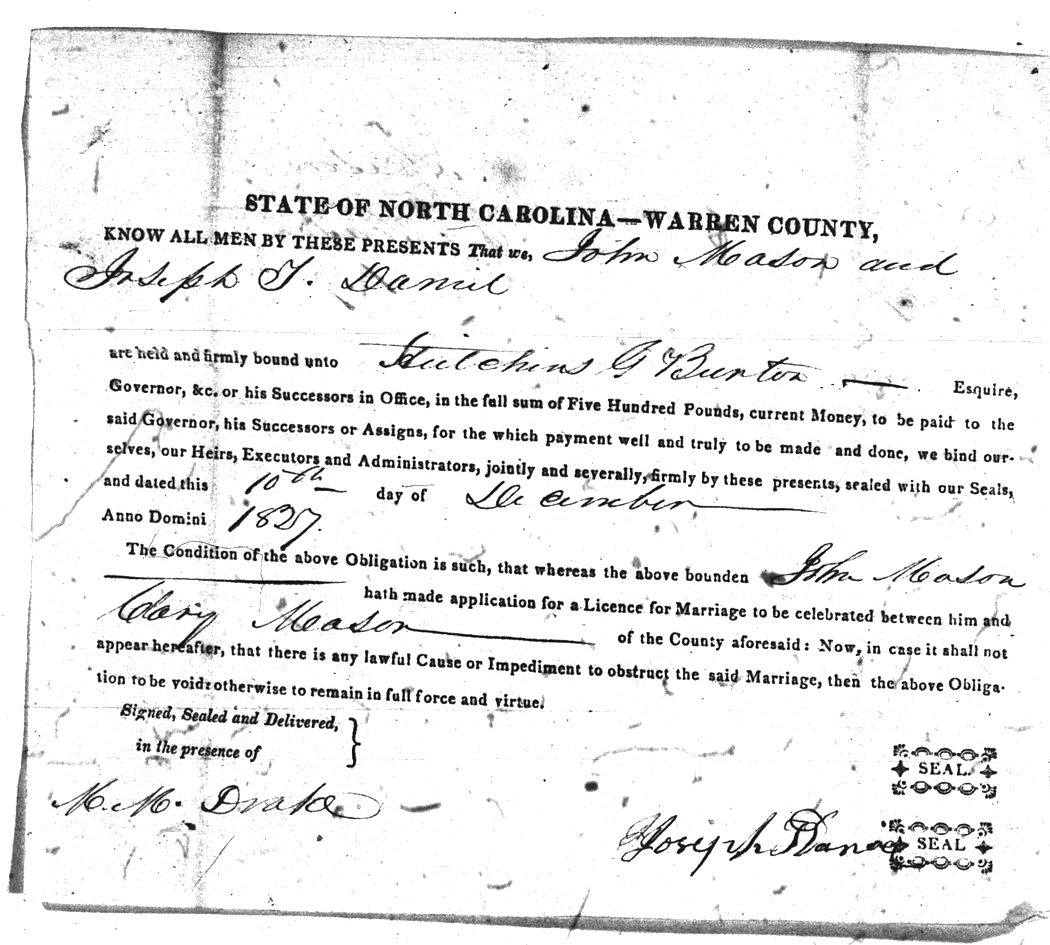 STATE OF NORTH CAROLINA—WARREN COUNTY,
KNOW ALL MEN BY THESE PRESENTS That we, John Mason and
Joseph T. Daniel
are held and firmly bound unto Hutchins G Burton Esquire,
Governor, &c. or his Successors in Office, in the full sum of Five Hundred Pounds, current Money, to be paid to the
said Governor, his Successors or Assigns, for the which payment well and truly to be made and done, we bind our-
selves, our Heirs, Executors and Administrators, jointly and severally, firmly by these presents, sealed with our Seals,
and dated this 10th day of December
Anno Domini 1827.
The Condition of the above Obligation is such, that whereas the above bounden John Mason
hath made application for a Licence for Marriage to be celebrated between him and
Mason of the County aforesaid: Now, in case it shall not
appear hereafter, that there is any lawful Cause or Impediment to obstruct the said Marriage, then the above Obliga-
tion to be void: otherwise to remain in full force and virtue.
Signed, Sealed and Delivered,
in the presence of
SEAL.
M. M. Drake
Joseph SEAL